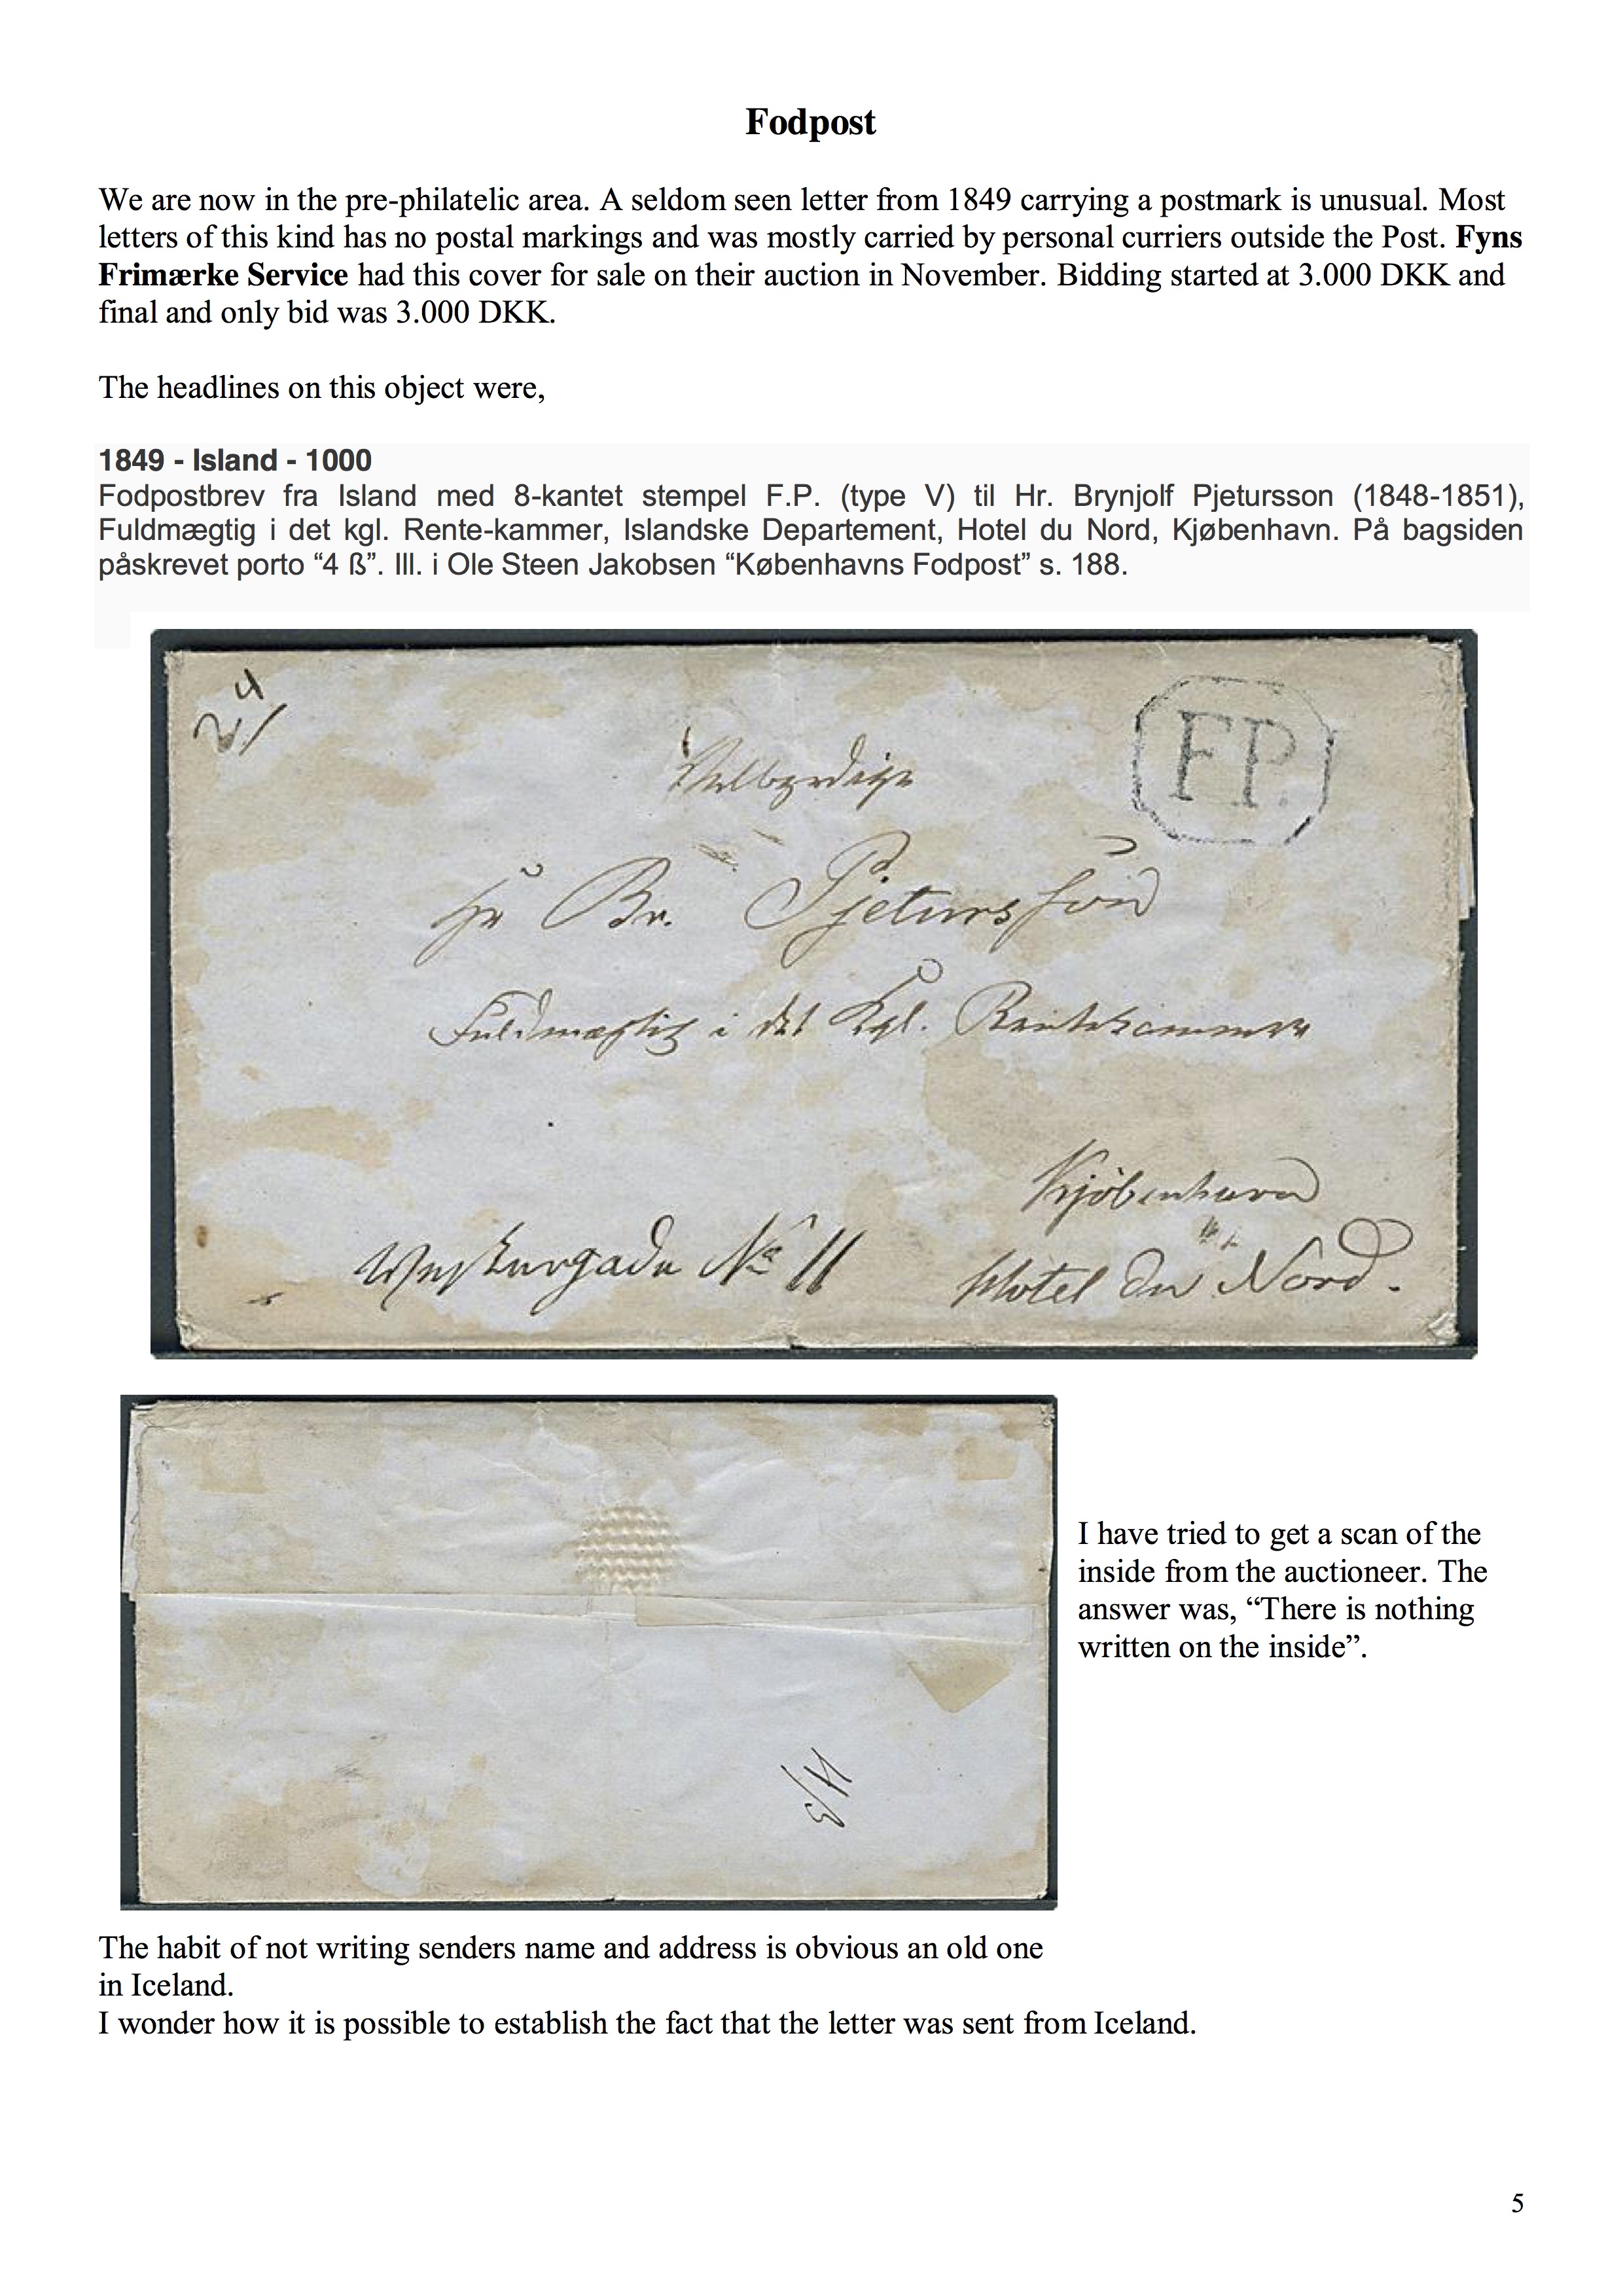 Fodpost
We are now in the pre-philatelic area. A seldom seen letter from 1849 carrying a postmark is unusual. Most
letters of this kind has no postal markings and was mostly carried by personal curriers outside the Post. Fyns
Frimærke Service had this cover for sale on their auction in November. Bidding started at 3.000 DKK and
final and only bid was 3.000 DKK.
The headlines on this object were,
1849 - Island - 1000
Fodpostbrev fra Island med 8-kantet stempel F.P. (type V) til Hr. Brynjolf Pjetursson (1848-1851),
Fuldmægtig i det kgl. Rente-kammer, Islandske Departement, Hotel du Nord, Kjøbenhavn. På bagsiden
påskrevet porto “4 ß”. Ill. i Ole Steen Jakobsen “Københavns Fodpost” s. 188.
24
F.P.
Velbyrdige
Hr Br. Pjetursson
Fuldmægtig i det Kgl. Rentekammer
Kjöbenhavn
No 11
Hotel du Nord.
I have tried to get a scan of the
inside from the auctioneer. The
answer was, “There is nothing
written on the inside”.
The habit of not writing senders name and address is obvious an old one
in Iceland.
I wonder how it is possible to establish the fact that the letter was sent from Iceland.
5